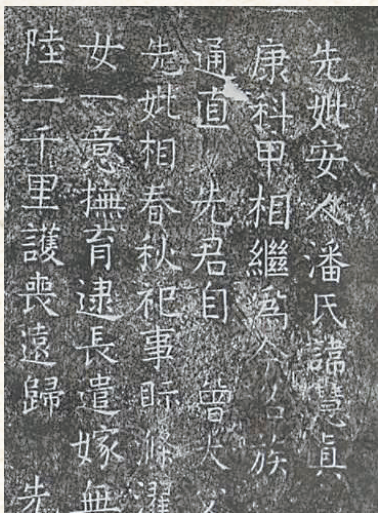 先妣安人潘氏諱慧真
康科甲相繼為今名族
通直 先君自 曾大父
先妣相春秋祀事眎滌濯
女一意撫育逮長遣嫁無
陸二千里護喪遠歸 先